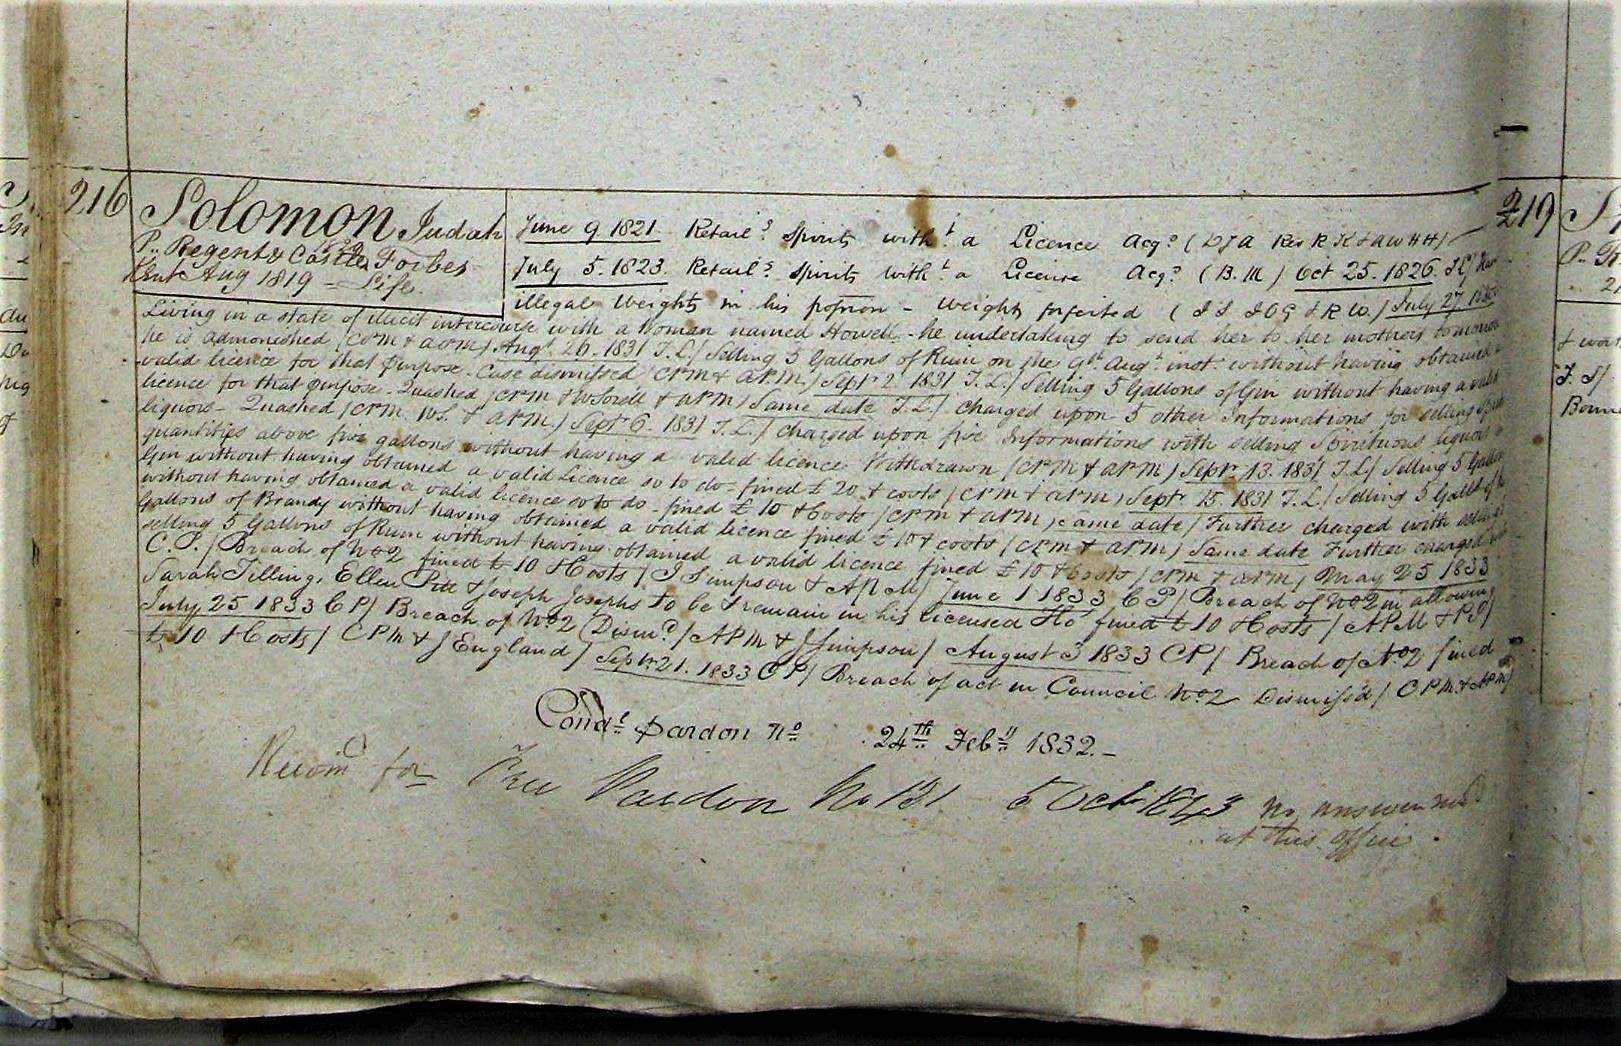 216 Solomon Judah
P. Regent & Castle Forbes 1820
Kent Aug 1819 = Life.
June 9 1821 Retail.g Spirits with.t a Licence Acq.d (DJA Rev R K & AWHH)
July 5. 1823. Retail.g Spirits with.t a License Acq.d (B. M) Oct 25. 1826. JL/
illegal Weights in his poſsion - Weights forfeited (J S J O G & R W.) July 27.
Living in a state of illicit intercourse with a Woman named Howell - he undertaking to send her to her mothers tomorrow
he is admonished (CPM & APM) Aug.t 26. 1831 J.L/ Selling 5 Gallons of Rum on the 9.th Aug.t inst. without having obtained a
valid licence for that purpose. Case dismiſsed (CPM & APM) Sept 2. 1831 J.L/ Selling 5 Gallons of Gin without having a valid
licence for that purpose. Quashed (CPM & WSorell & APM) Same date J.L/ charged upon 5 other Informations for selling
liquors - Quashed (CPM. WS. & APM.) Sept 6. 1831 J.L/ charged upon five Informations with selling Spirituous liquors
quantities above five gallons without having a valid licence Withdrawn (CPM & APM) Sept 13. 1831 J.L/ Selling 5 Gallons
Gin without having obtained a valid Licence so to do - fined £20 & costs (CPM & APM) Sept 15. 1831 J.L/ Selling 5 Gallns of
without having obtained a valid licence so to do - fined £10 & Costs (CPM & APM) same date/ Further charged with selling 5
Gallons of Brandy without having obtained a valid licence fined £10 & costs (CPM & APM) Same date Further charged with
selling 5 Gallons of Rum without having obtained a valid licence fined £10 & Costs (CPM & APM) May 25 1833
C. P./ Breach of No 2 fined £10 & Costs / J Simpson & APM/ June 1 1833 C P/ Breach of No 2 in allowing
Sarah Tilling, Ellen Pitt & Joseph Josephs to be & remain in his licensed Ho fined £10 & Costs / APM & PS/
July 25 1833 C P/ Breach of No. 2 (Dism.d / APM & J Simpson / August 3 1833 CP/ Breach of No 2 fined
£10 & Costs / CPM & J England / Sept 21. 1833 CP/ Breach of act in Council No 2 Dismiſsd / CPM & APM/
Cond.l Pardon No 24th Feb.y 1832. -
Recom.d for Free Pardon No 131 5 Oct 1843 No answer rec.d
at this office.
219